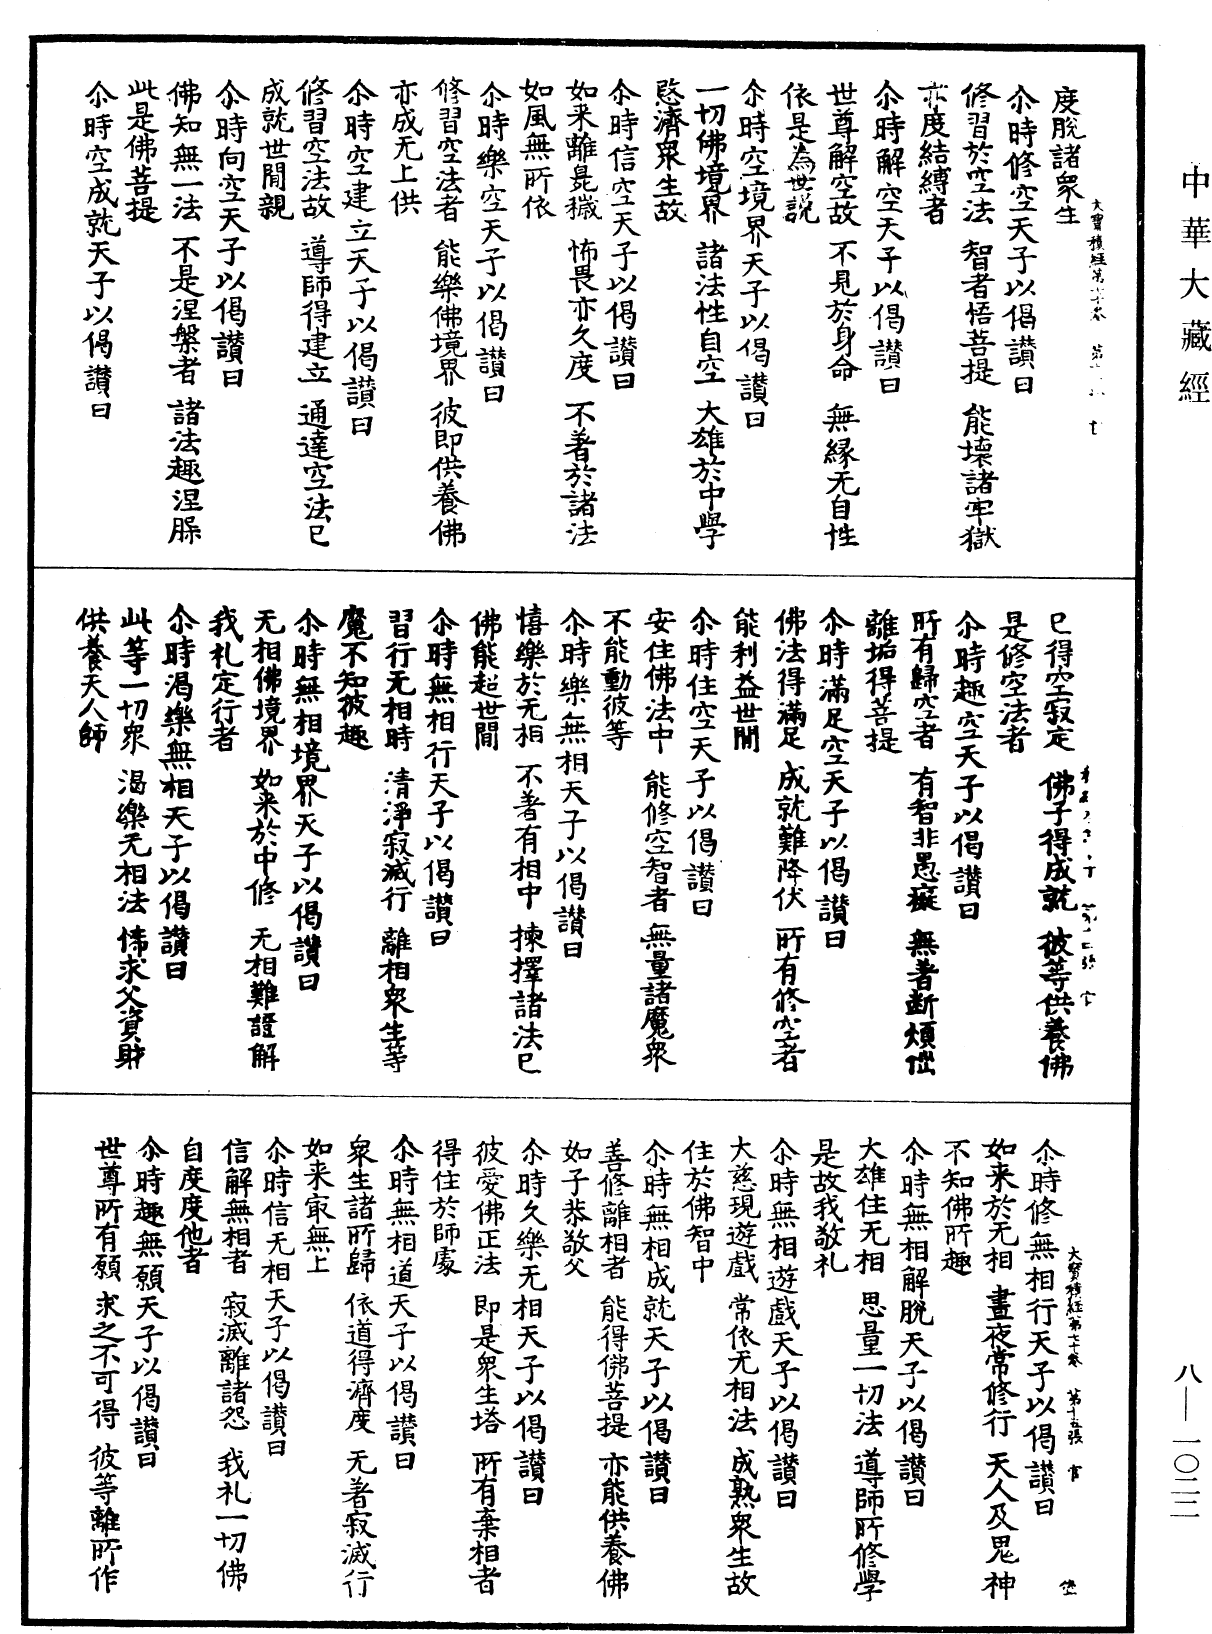 中華大藏經
度脫諸衆生
尒時修空天子以偈讃曰
修習於空法　智者悟菩提　能壞諸牢獄
亦度結縛者
尒時解空天子以偈讃曰
世尊解空故　不見於身命　無縁无自性
依是為世説
尒時空境界天子以偈讃曰
一切佛境界　諸法性自空　大雄於中學
愍濟衆生故
尒時信空天子以偈讃曰
如来離㲋穢　怖畏亦久度　不著於諸法
如風無所依
尒時樂空天子以偈讃曰
修習空法者　能樂佛境界　彼即供養佛
亦成无上供
尒時空建立天子以偈讃曰
修習空法故　導師得建立　通達空法已
成就世間親
尒時向空天子以偈讃曰
佛知無一法　不是涅槃者　諸法趣涅槃
此是佛菩提
尒時空成就天子以偈讃曰
已得空寂定　佛子得成就　彼等供養佛
是修空法者
尒時趣空天子以偈讃曰
所有歸空者　有智非愚癡　無著断煩惱
離垢得菩提
尒時滿足空天子以偈讃曰
佛法得滿足　成就難降伏　所有修空者
能利益世間
尒時住空天子以偈讃曰
安住佛法中　能修空智者　無量諸魔衆
不能動彼等
尒時樂無相天子以偈讃曰
憘樂於无相　不著有相中　揀擇諸法已
佛能超世間
尒時無相行天子以偈讃曰
習行无相時　清淨寂滅行　離相衆生等
魔不知彼趣
尒時無相境界天子以偈讃曰
无相佛境界　如来於中修　无相難證解
我礼定行者
尒時渴樂無相天子以偈讃曰
此等一切衆　渴樂无相法　悕求父資財
供養天人師
大寶積經第七十卷　第十五張　官
尒時修無相行天子以偈讃曰
如来於无相　晝夜常修行　天人及鬼神
不知佛所趣
尒時無相解脫天子以偈讃曰
大雄住无相　思量一切法　導師所修學
是故我敬礼
尒時無相遊戲天子以偈讃曰
大慈現遊戲　常依无相法　成熟衆生故
住於佛智中
尒時無相成就天子以偈讃曰
善修離相者　能得佛菩提　亦能供養佛
如子恭敬父
尒時久樂无相天子以偈讃曰
彼愛佛正法　即是衆生塔　所有棄相者
得住於師處
尒時無相道天子以偈讃曰
衆生諸所歸　依道得濟度　无著寂滅行
如来㝡無上
尒時信无相天子以偈讃曰
信解無相者　寂滅離諸怨　我礼一切佛
自度度他者
尒時趣無願天子以偈讃曰
世尊所有願　求之不可得　彼等離所作
八—一〇二二